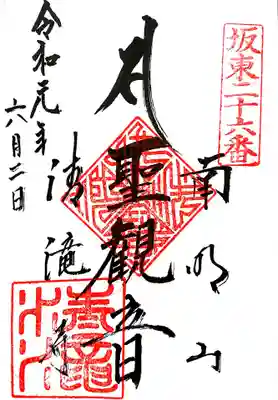 坂東二十六番
南明山
聖観音
清滝寺
令和元年
六月二日